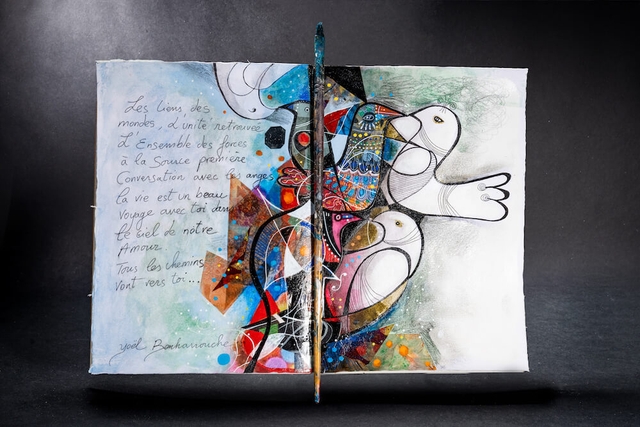 Les liens des
mondes, d'unité retrouvée
L'Ensemble des forces
à la Source première
Conversation avec les anges
La vie est un beau
Voyage avec toi dans
le ciel de notre
Amour
Tous les chemins
vont vers toi...
Yoël Benharrouche